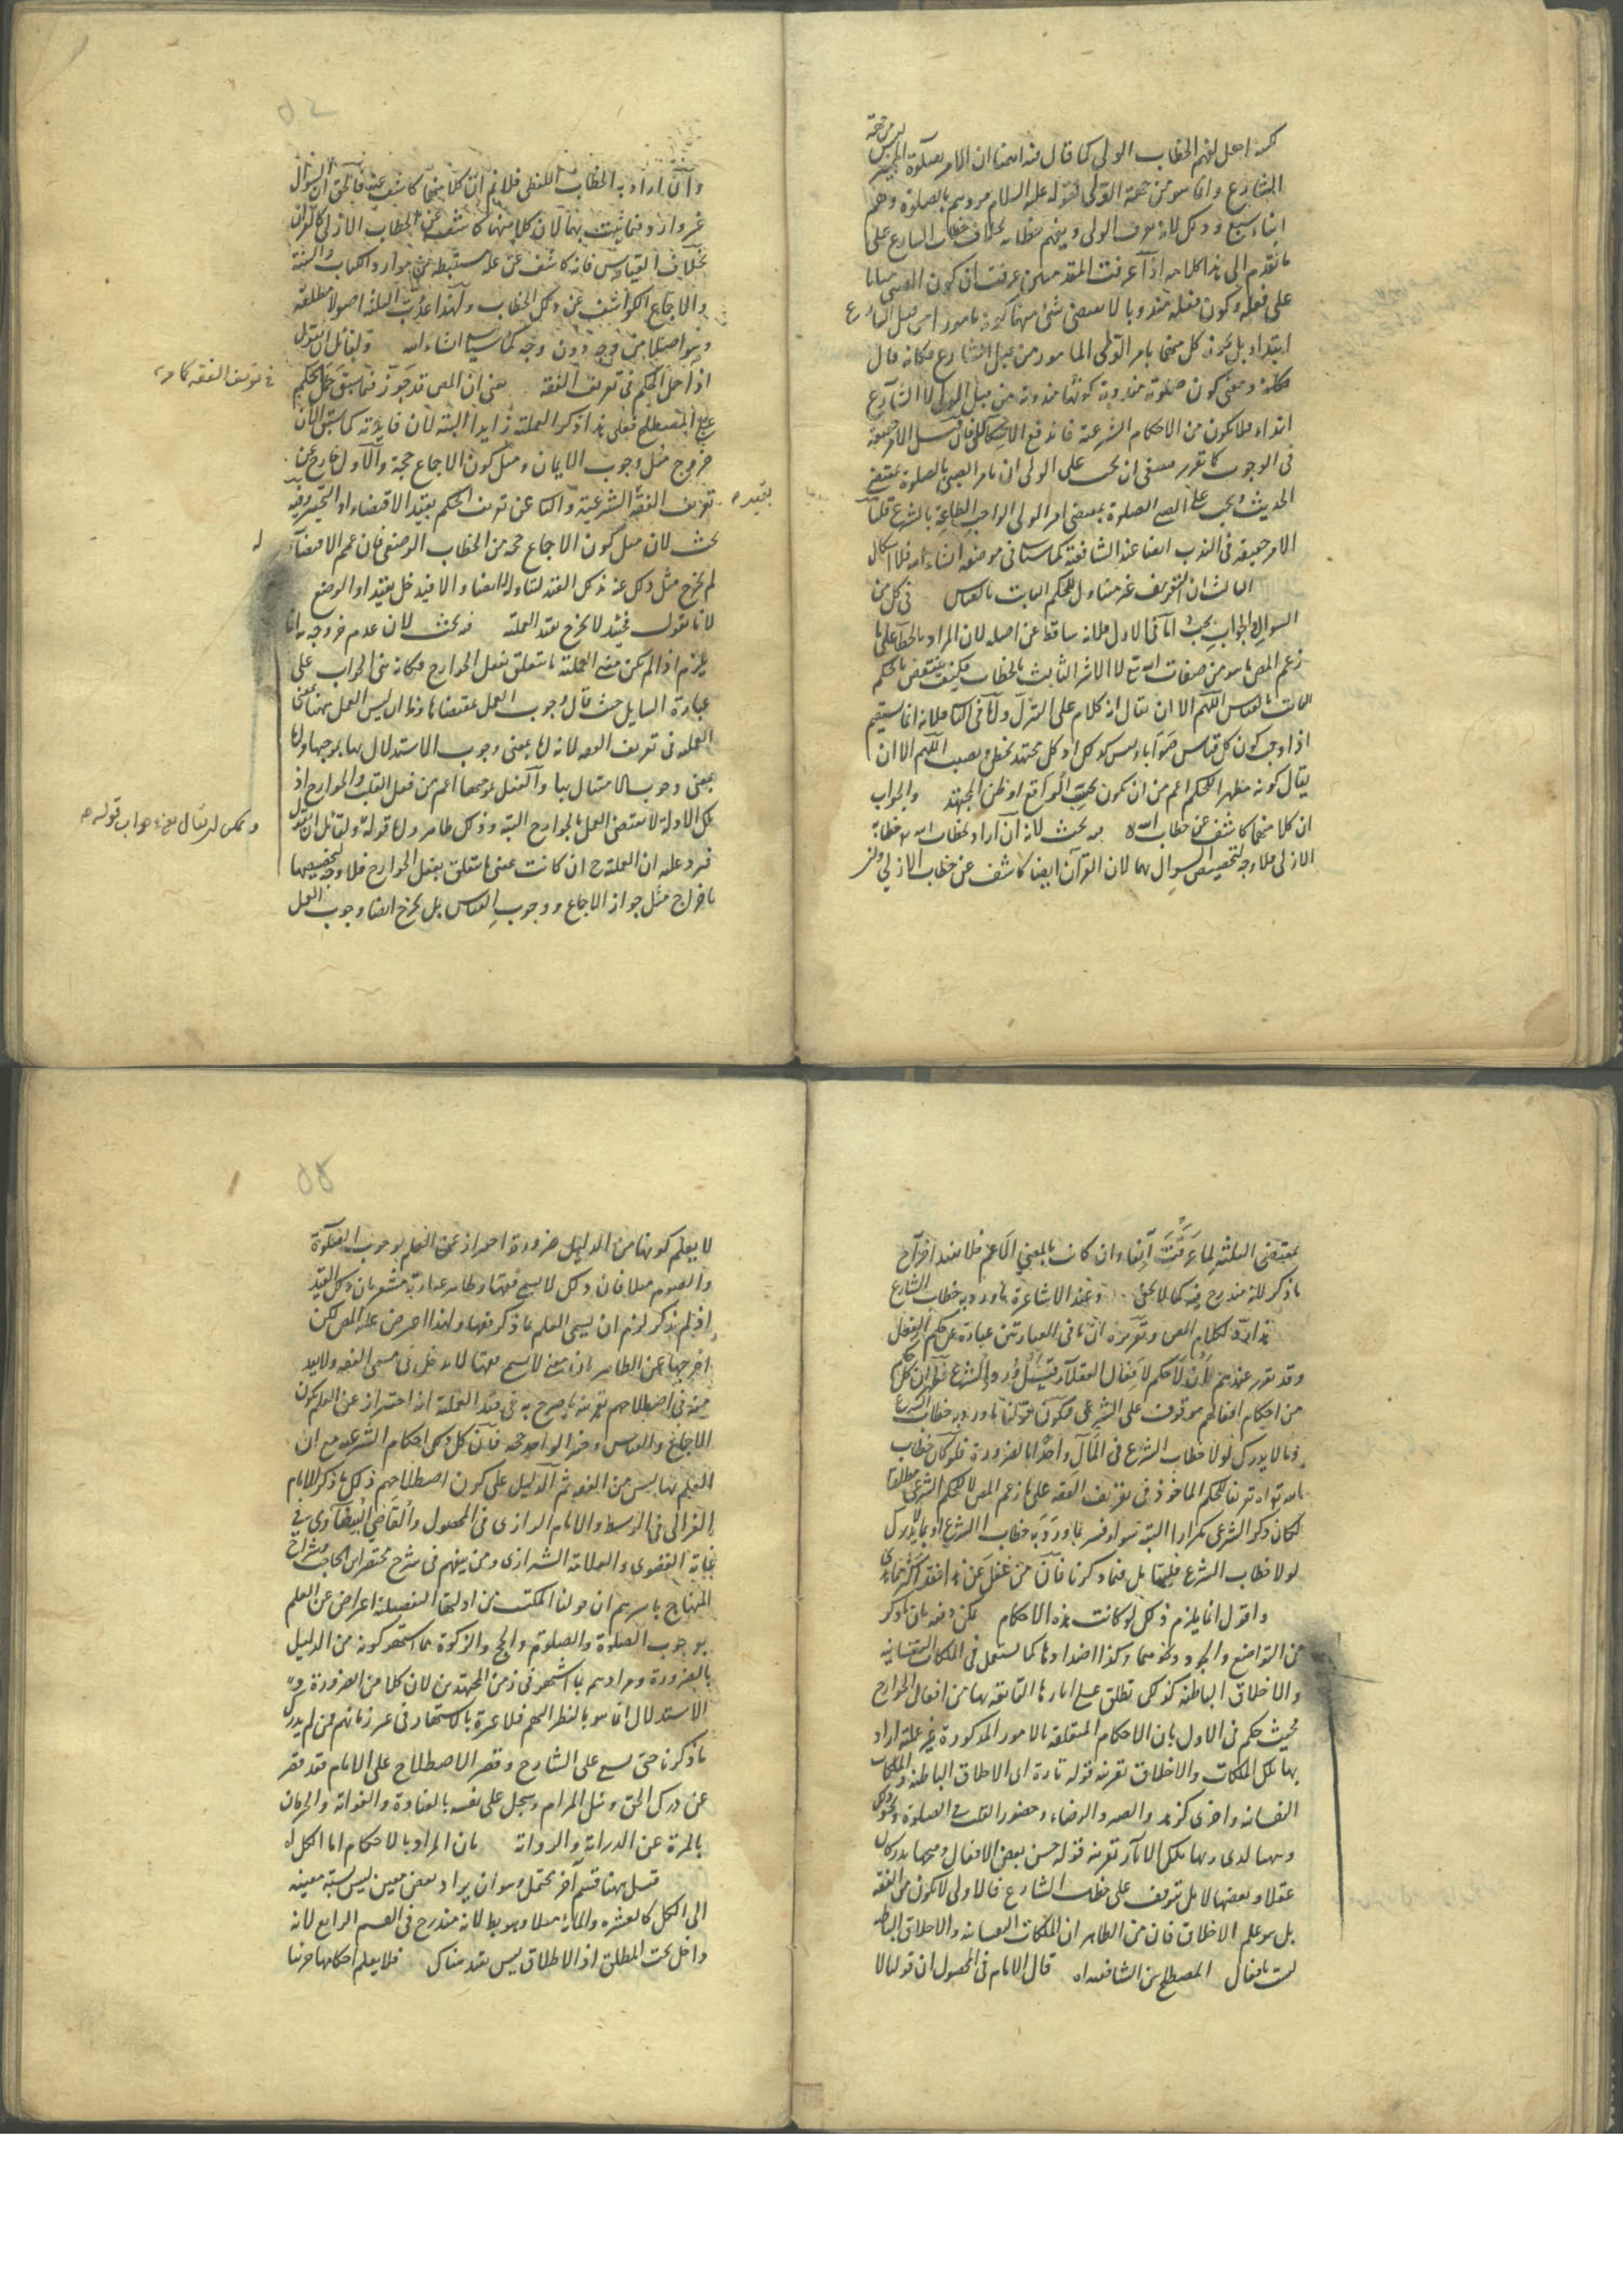 كونه اهل لفهم الخطاب الولي كما قال فيه ان الامر بصلوة المميز ليس من جهة
الشارع وانما هو من جهة الولي لقوله عليه السلام مروهم بالصلوة وهم
ابناء سبع وذلك لانه يعرف الولي ويفهم خطابه بخلاف خطاب الشارع على
ما تقدم الى هنا كلامه اذا عرفت المقدمتين عرفت ان كون الصبي مثابا
على فعله وكون فعله مندوبا لا يقتضي شئ منهما كونه مامورا من قبل الشارع
ابتداء بل يكون كل منهما بامر الولي المامور من قبل الشارع فكانه قال
معنى كون صلوته مندوبة كونها مندوبة من قبل الولي لا الشارع
ابتداء فلا يكون من الاحكام الشرعية فاندفع الاشكال فان قيل الامر حقيقة
في الوجوب كما تقرر فينبغي ان يجب على الولي ان يامر الصبي بالصلوة بمقتضى
الحديث ويجب على الصبي الصلوة بمقتضى امر الولي الواجب الطاعة بالشرع قلنا
الامر حقيقة في الندب ايضا عند الشافعية كما سياتي في موضعه ان شاء الله فلا اشكال
الثالث ان التعريف غير متناول للحكم الثابت بالقياس في كل من
السوال والجواب بحث اما في الاول فلانه ساقط عن اصله لان المراد بالخطاب على ما
زعم المص ما هو من صفات الله تع لا الاثر الثابت بالخطاب فكيف ينتقض بالحكم
الثابت بالقياس اللهم الا ان يقال انه كلام على التنزل واما في الثاني فلانه انما يستقيم
اذا وجب كون كل قياس صوابا وليس كذلك اذ كل مجتهد يخطئ ويصيب اللهم الا ان
يقال كونه مظهرا للحكم اعم من ان يكون بحسب الواقع او ظن المجتهد والجواب
ان كلا منهما كاشف عن خطاب الله اه فيه بحث لانه ان اراد بخطاب الله خطابه
الازلي فلا وجه لتخصيص السوال بهما لان القرآن ايضا كاشف عن خطاب الازلي
وان اراد به الخطاب اللفظي فلا نم ان كلا منهما كاشف عنه فالحق ان السوال
غير وارد فيما ثبت بهما لان كلا منهما كاشف عن الخطاب الازلي كالقران
بخلاف القياس فانه كاشف عن علة مستنبطة من موارد الكتاب والسنة
والاجماع الكواشف عن ذلك الخطاب ولهذا عدت الثلثة اصولا مطلقة
وهو اصلا من وجه دون وجه كما سياتي ان شاء الله ولقائل ان يقول
اذا حمل الحكم في تعريف الفقه يعني ان المص قد جوز فيما سبق حمل الحكم
في تعريف الفقه كما مر
على المصطلح فعلى هذا ذكر العملية زايدا البتة لان فايدته كما سبق الآن
خروج مثل وجوب الايمان ومثل كون الاجماع حجة والاول خارج عن
تعريف الفقه بقيد الشرعية والثاني عن تعريف الحكم بقيد الاقتضاء او التخيير وفيه
بحث لان مثل كون الاجماع حجة من الخطاب الوضعي فان عمم الاقتضاء
لم يخرج مثل ذلك عنه ذلك القيد لتناوله ايضا والا فيدخل بقيد او الوضع
لانا نقول فحينئذ لا يخرج بقيد العملية فيه بحث لان عدم خروجه انما
يلزم اذا لم يكن معنى العملية ما يتعلق بفعل الجوارح فكانه بنى الجواب على
عبارة السايل حيث قال وجوب العمل بمقتضاها وظ ان ليس العمل ههنا بمعنى
العملية في تعريف الفقه لانه اما بمعنى وجوب الاستدلال بها بوجهها واما
بمعنى وجوب الامتثال بها والعمل بموجبها اعم من فعل القلب والجوارح اذ
تلك الادلة لا يقتضي العمل بالجوارح البتة وذلك ظاهر واما قوله ولقائل ان يقول
ويمكن ان يقال هذا جواب قوله
فيرد عليه ان العملية ح ان كانت بمعنى ما يتعلق بفعل الجوارح فلا وجه لتخصيصها
باخراج مثل جواز الاجماع ووجوب القياس بل يخرج ايضا وجوب العمل
بمقتضى الثلثة لما عرفت آنفا وان كانت بالمعنى الاعم فلا يفيد اخراج
ما ذكر لانه مندرج فيه كما لا يخفى وعند الاشاعرة ما ورد به خطاب الشارع
هذا رد لكلام المص وتقريره ان ما في العبارتين عبارة عن حكم الفعل
وقد تقرر عندهم بأن لا حكم لافعال العقلاء قبل ورود الشرع فظهر ان كل حكم
من احكام افعالهم موقوف على الشرعي فيكون قولنا ما ورد به خطاب الشرع
وما لا يدرك لولا خطاب الشرع في المآل واحدا بالضرورة فلو كان خطاب
الله تع اه تعريفا للحكم الماخوذ في تعريف الفقه على ما زعم المص لا للحكم الشرعي مطلقا
لكان ذكر الشرعي تكرارا البتة سواء فسر بما ورد به خطاب الشرع او بما لا يدرك
لولا خطاب الشرع فليتامل فيما ذكرنا فان من غفل عن هذا فقد
واقول انما يلزم ذلك لو كانت هذه الاحكام يمكن دفعه بان ما ذكر
من التواضع والجود ونحوهما وكذا اضدادها كما يستعمل في الملكات النفسانية
والاخلاق الباطنة كذلك تطلق على آثارها اللائقة بها من افعال الجوارح
فحيث حكم في الاول بان الاحكام المتعلقة بالامور المذكورة غير عملية اراد
بها تلك الملكات والاخلاق بقرينة قوله تارة اى الاخلاق الباطنة والملكات
النفسانية واخرى كزهد والصبر والرضاء وحضور القلب في الصلوة ونحو ذلك
بها تلك الآثار بقرينة قوله حسن بعض الافعال وقبحها يدركان
عقلا وبعضها لا بل تتوقف على خطاب الشارع فالاولى لا يكون من الفقه
بل هو علم الاخلاق فان من الظاهر ان الملكات النفسانية والاخلاق الباطنة
ليست بافعال المصطلح بين الشافعية اه قال الامام في المحصول ان قولنا لا
لا يعلم كونها من الدليل ضرورة احتراز عن العلم بوجوب الصلوة
والصوم مثلا فان ذلك لا يسمى فقها وظاهر عبارته مشعر بان ذلك القيد
اذ لم يذكر لزم ان يسمى العلم بما ذكر فقها ولهذا اعترض عليه المص لكن
اخرجها عن الظاهر بان معنى لا يسمى فقها لا يدخل في مسمى الفقه ولا يعد
منه في اصطلاحهم بقرينة ما صرح به في قيد العملية انه احتراز عن العلم بكون
الاجماع والقياس وخبر الواحد حجة فان كل ذلك احكام الشرعية مع ان
العلم بها ليس من الفقه ثم الدليل على كون اصطلاحهم ذلك ما ذكر الامام
الغزالى في الوسيط والامام الرازى في المحصول والقاضي البيضاوي في
غاية القصوى والعلامة الشيرازى ومن يفهم في شرح مختصر ابن الحاجب وشراح
المنهاج باسرهم ان قولنا المكتسب من ادلتها التفصيلية اعراض عن العلم
بوجوب الصلوة والصلوة والحج والزكوة مما اشتهر كونه من الدليل
بالضرورة ومرادهم ما اشتهر في زمن المجتهدين لان كلا من الضرورة و
الاستدلال انما هو بالنظر اليهم فلا عبرة بالاشتهار في غير زمانهم فمن لم يدرك
ما ذكرنا حتى شنع على الشارح وقصر الاصطلاح على الامام فقد قصر
عن درك الحق ونيل المرام وسجل على نفسه بالغباوة والغواية والحرمان
بالمرة عن الدراية والرواية بان المراد بالاحكام اما الكل اه
قيل ههنا قسم آخر محتمل وهو ان يراد بعض معين ليس نسبته معينة
الى الكل كالعشرة والمائة مثلا وهو بط لانه مندرج في القسم الرابع لانه
داخل تحت المطلق اذ الاطلاق ليس بقيد هناك فلا يعلم احكامها جزئيا